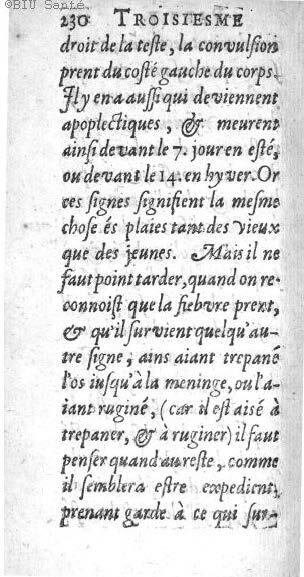 ©BIU Santé
230 TROISIESME
droit de la teste, la convulsion
prent du costé gauche du corps.
Il y en a aussi qui deviennent
apoplectiques, & meurent
ainsi devant le 7. jour en esté,
ou devant le 14. en hyver. Or
ces signes signifient la mesme
chose és plaies tant des vieux
que des jeunes. Mais il ne
faut point tarder, quand on re-
connoist que la fiebvre prent,
& qu'il survient quelqu'au-
tre signe, ains aiant trepané
l'os iusqu'à la meninge, ou l'a-
iant ruginé, (car il est aisé à
trepaner, & à ruginer) il faut
penser quand au reste, comme
il semblera estre expedient,
prenant garde à ce qui sur-